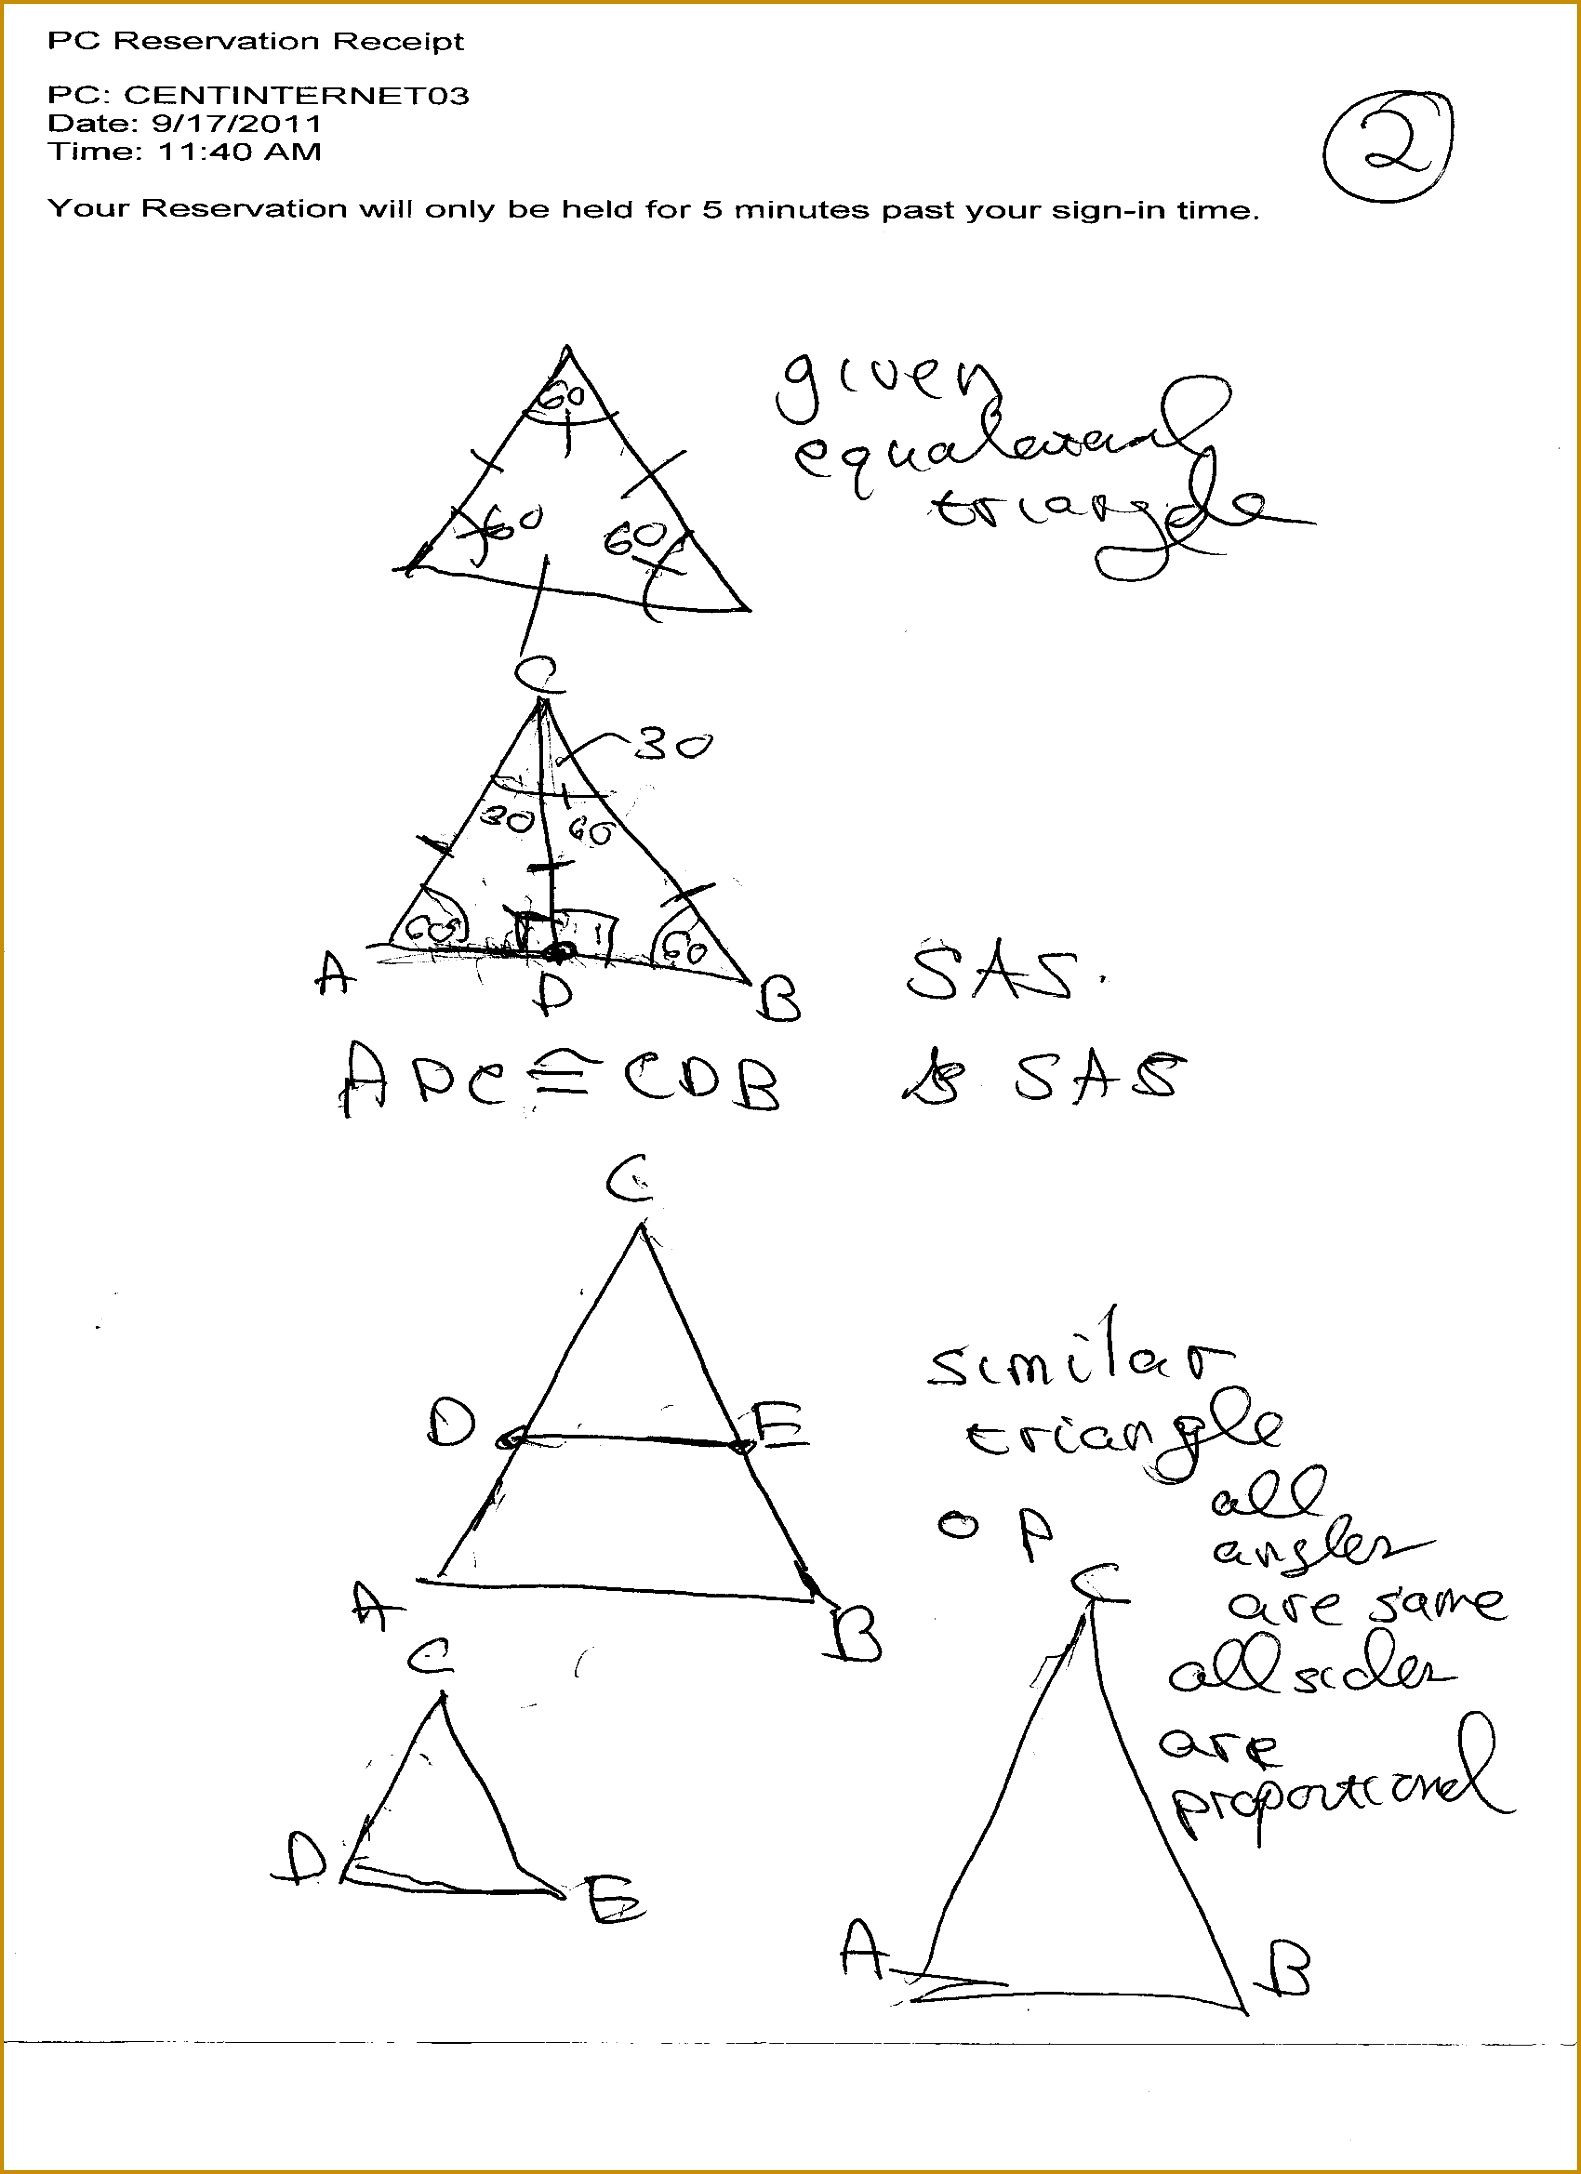 PC Reservation Receipt
PC: CENTINTERNET03
Date: 9/17/2011
Time: 11:40 AM
2
Your Reservation will only be held for 5 minutes past your sign-in time.
given
equalateral
triangle
60
60 60
C
30
30 60
60 60
A D B
SAS.
ADC ≅ CDB
SAS
C
D E
A B
similar
triangle
all
angles
are same
all sides
are
proportional
C
D E
C
A B